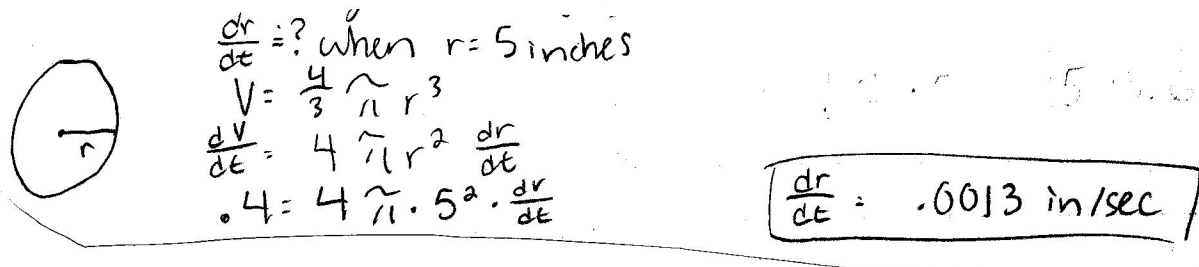 dr/dt = ? when r = 5 inches
V = 4/3 π r³
r
dV/dt = 4 π r² dr/dt
.4 = 4 π · 5² · dr/dt
dr/dt = .0013 in/sec